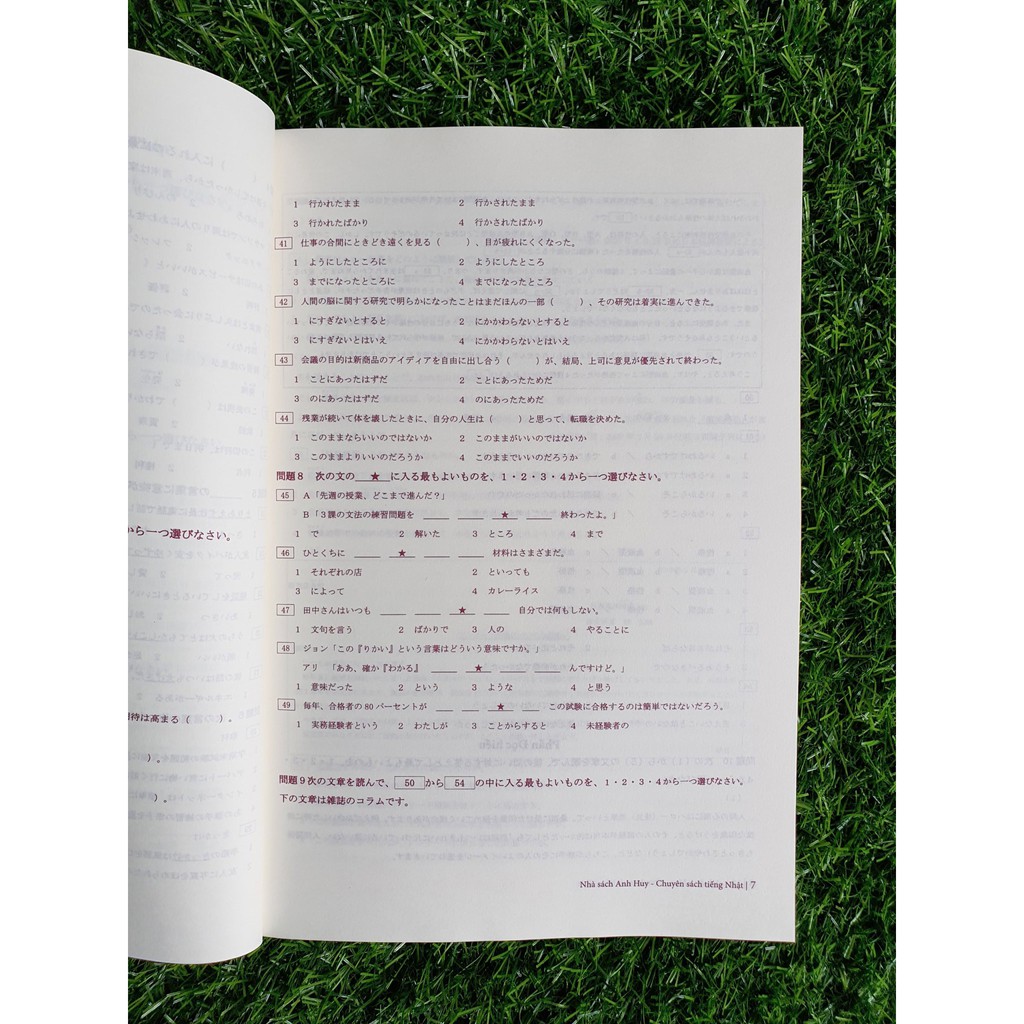 1 行かれたまま 2 行かされたまま
3 行かれたばかり 4 行かされたばかり
41 仕事の合間にときどき遠くを見る（ ）、目が疲れにくくなった。
1 ようにしたところに 2 ようにしたところ
3 までになったところに 4 までになったところ
42 人間の脳に関する研究で明らかになったことはまだほんの一部（ ）、その研究は着実に進んできた。
1 にすぎないとすると 2 にかかわらないとすると
3 にすぎないとはいえ 4 にかかわらないとはいえ
43 会議の目的は新商品のアイディアを自由に出し合う（ ）が、結局、上司に意見が優先されて終わった。
1 ことにあったはずだ 2 ことにあったためだ
3 のにあったはずだ 4 のにあったためだ
44 残業が続いて体を壊したときに、自分の人生は（ ）と思って、転職を決めた。
1 このままならいいのではないか 2 このままがいいのではないか
3 このままよりいいのだろうか 4 このままでいいのだろうか
問題８ 次の文の＿★＿に入る最もよいものを、１・２・３・４から一つ選びなさい。
45 A「先週の授業、どこまで進んだ？」
B「３課の文法の練習問題を ＿＿ ＿＿ ★ ＿＿ 終わったよ。」
1 で 2 解いた 3 ところ 4 まで
46 ひとくちに ＿＿ ★ ＿＿ ＿＿ 材料はさまざまだ。
1 それぞれの店 2 といっても
3 によって 4 カレーライス
47 田中さんはいつも ＿＿ ＿＿ ★ ＿＿ 自分では何もしない。
1 文句を言う 2 ばかりで 3 人の 4 やることに
48 ジョン「この『りかい』という言葉はどういう意味ですか。」
アリ 「ああ、確か『わかる』 ＿＿ ★ ＿＿ ＿＿ んですけど。」
1 意味だった 2 という 3 ような 4 と思う
49 毎年、合格者の 80 パーセントが ＿＿ ＿＿ ★ ＿＿ この試験に合格するのは簡単ではないだろう。
1 実務経験者という 2 わたしが 3 ことからすると 4 未経験者の
問題９次の文章を読んで、 50 から 54 の中に入る最もよいものを、１・２・３・４から一つ選びなさい。
下の文章は雑誌のコラムです。
Nhà sách Anh Huy - Chuyên sách tiếng Nhật | 7
から一つ選びなさい。
待は高まる（ ）。
）。
）。